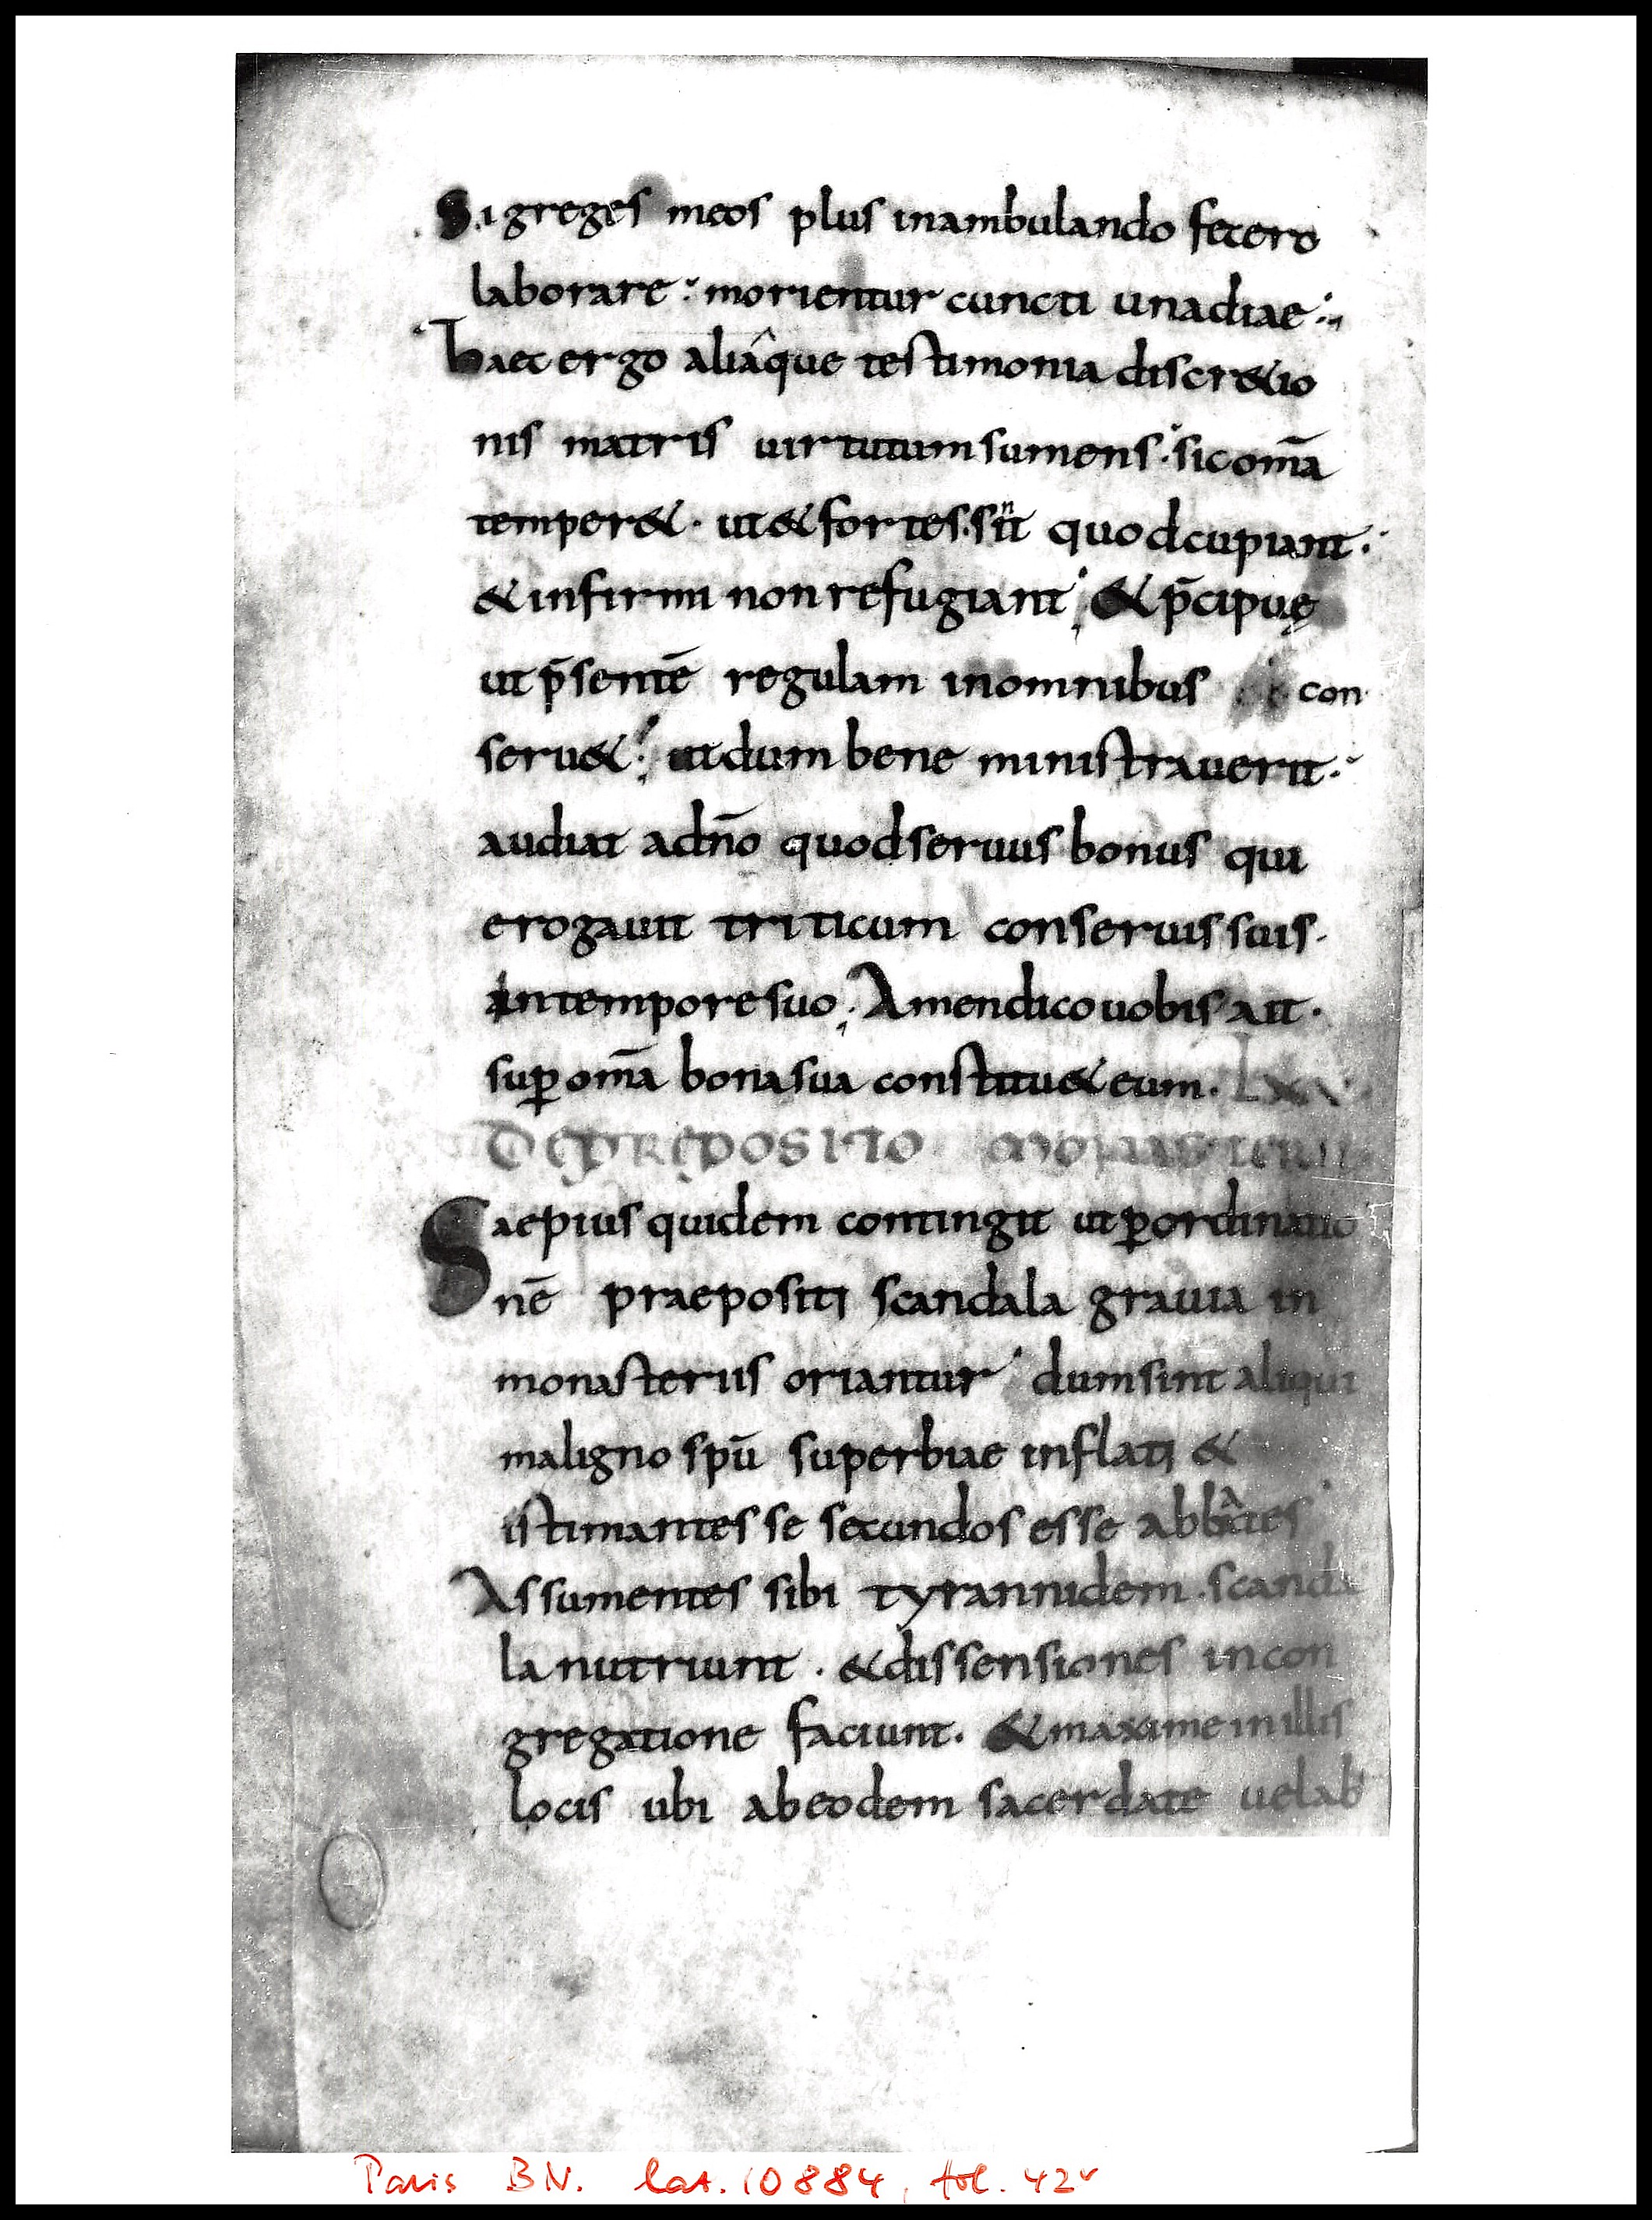 Si greges meos plus inambulando fecero
laborare morientur cuncti unadiae
haec ergo aliaque testimonia discr&io
nis matris uirtutum sumens· sic om̄a
temper&· ut & fortes· sint quod cupiant·
& infirmi non refugiant; & p̄cipuę
ut p̄sentē regulam inomnibus con
seru&; ut dum bene ministrauerit·
audiat adn̄o quod seruus bonus qui
erogauit triticum conseruis suis·
intempore suo; Amen dico uobis ait·
suꝑ om̄a bona sua constitu& eum·
DEPREPOSITO MONASTERII
Saepius quidem contingit ut ꝑ ordinatio
nē praepositi scandala grauia in
monasteriis oriantur dum sint aliqui
maligno spū superbiae inflati &
istimantes se secundos esse abbates
Assumentes sibi tyrannidem· scanda
la nutriunt· & dissensiones in con
gregatione faciunt· & maxime in illis
locis ubi ab eodem sacerdate uel ab
Paris BN. lat. 10884, fol. 42v